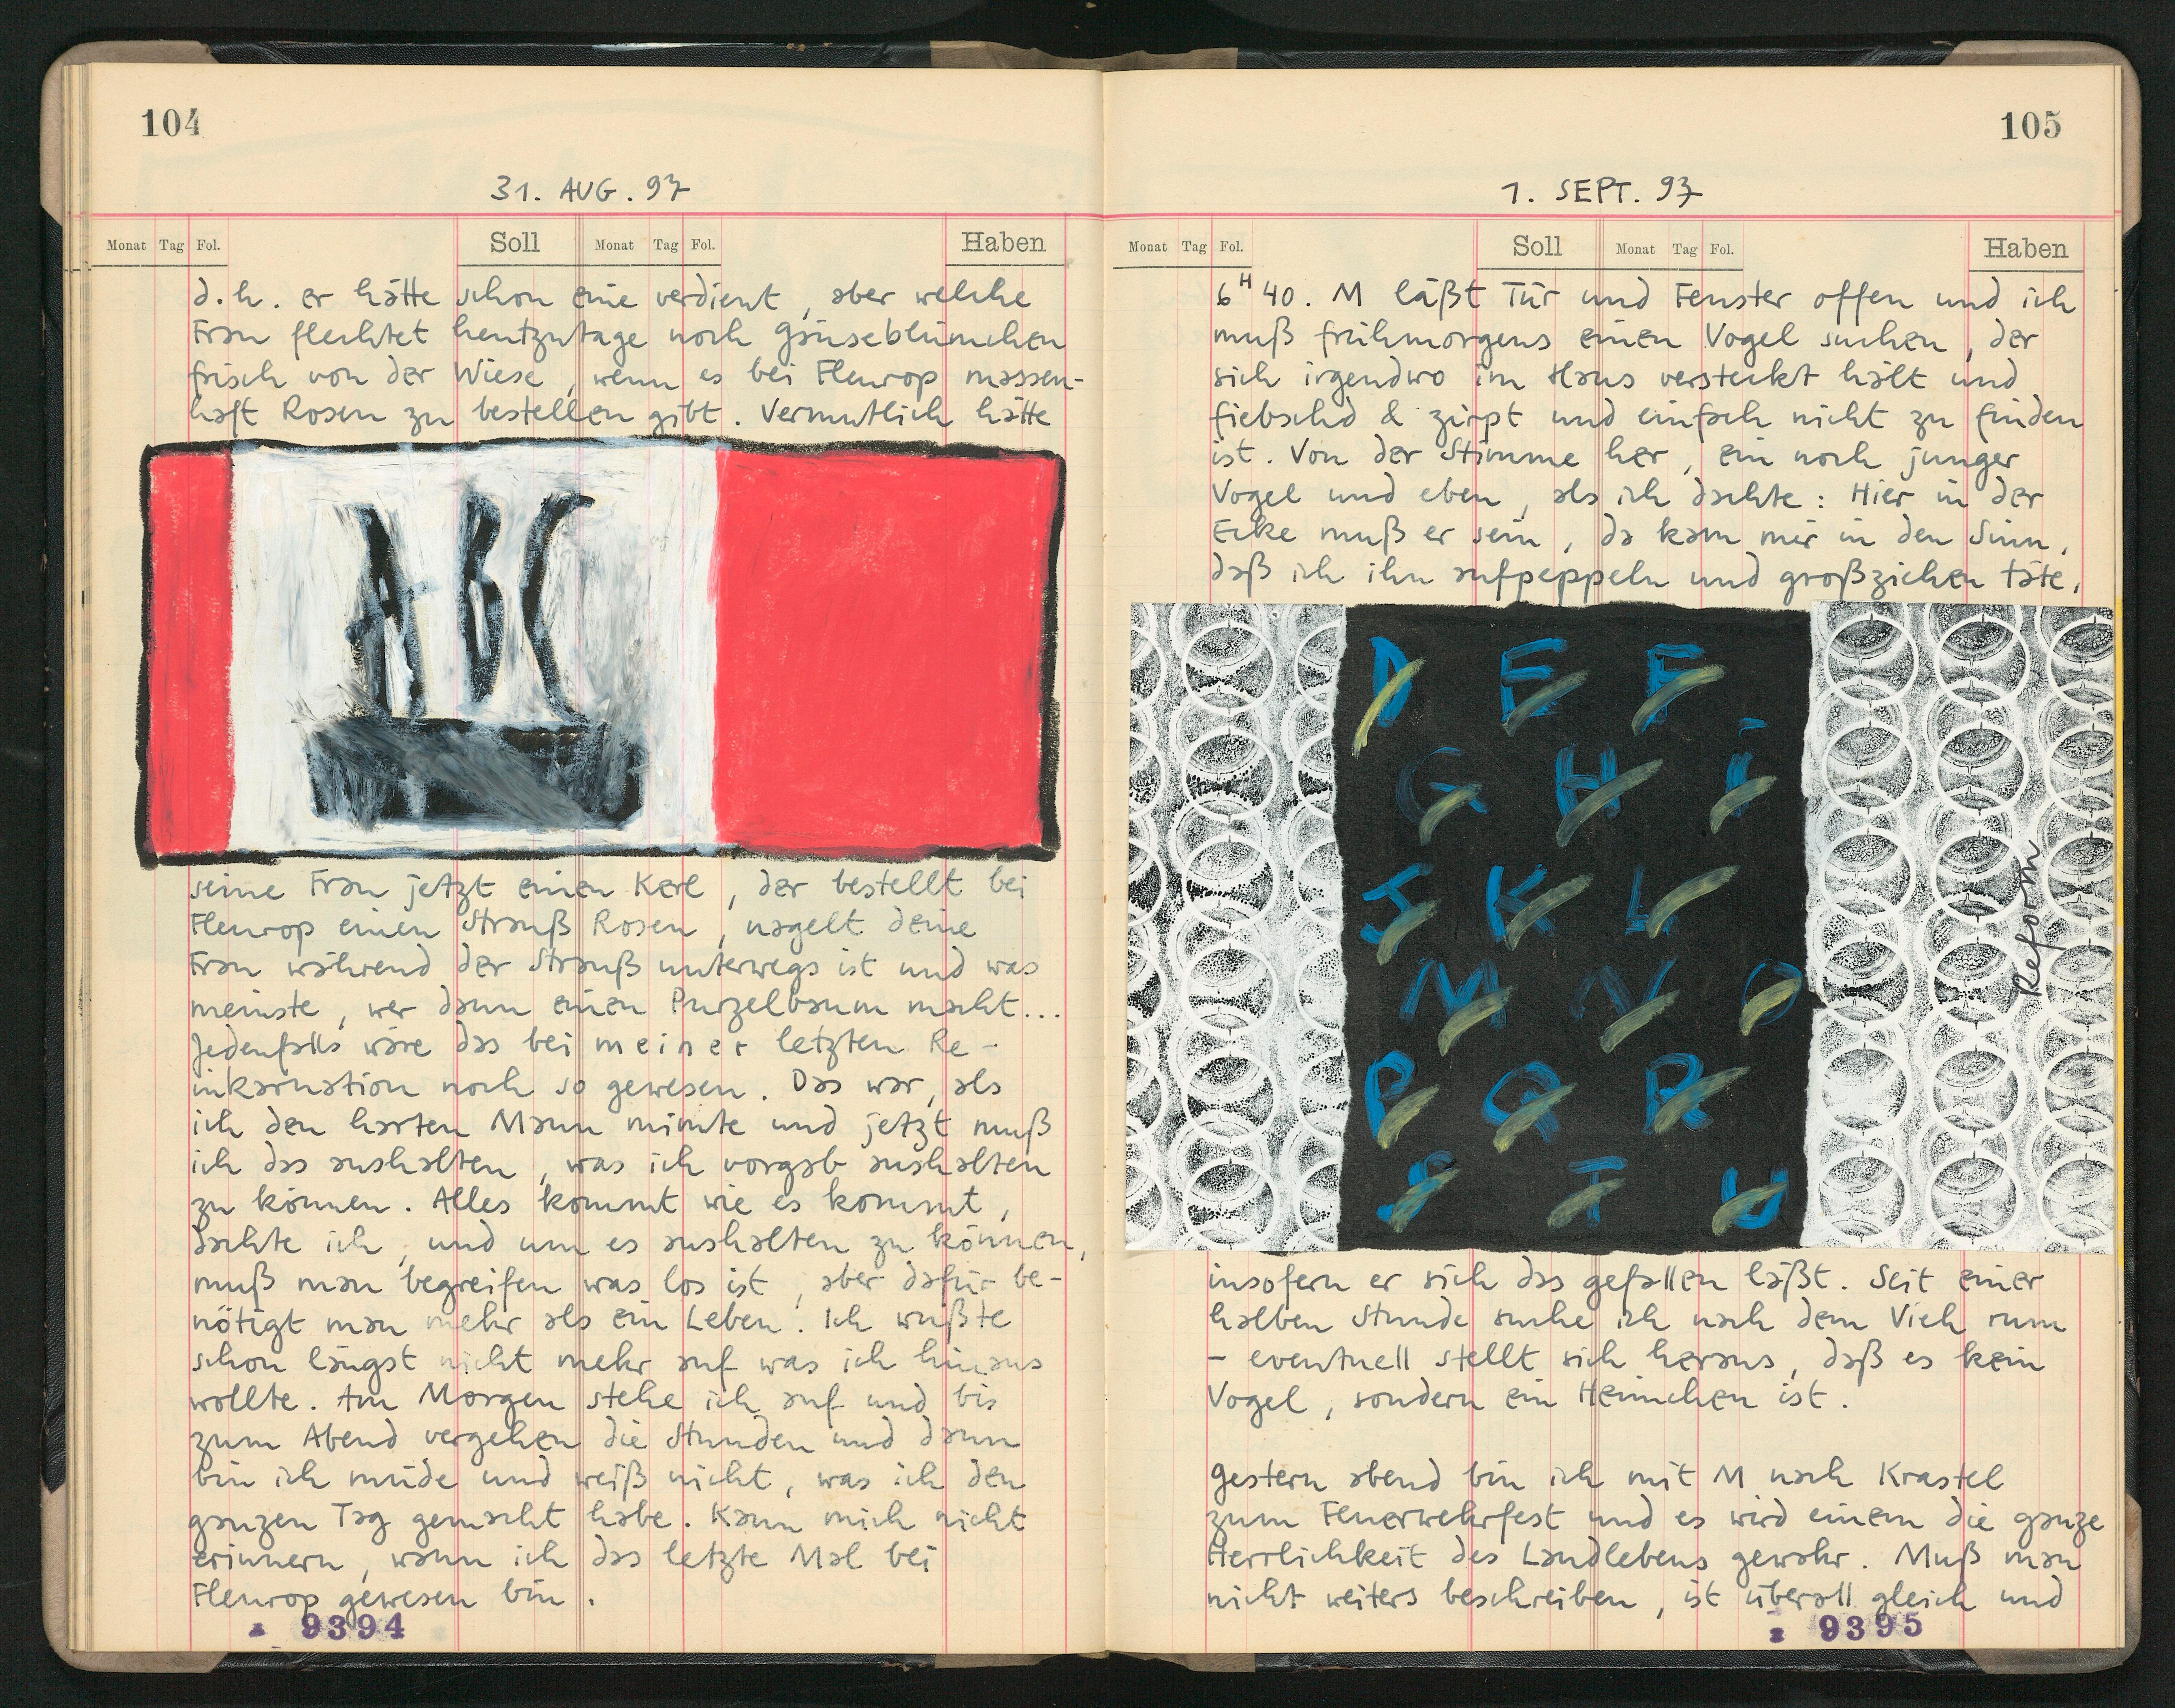 104
31. AUG. 97
Monat Tag Fol. Soll Monat Tag Fol. Haben
d.h. er hätte schon eine verdient, aber welche
Frau flechtet heutzutage noch Gänseblümchen
frisch von der Wiese, wenn es bei Fleurop massen-
haft Rosen zu bestellen gibt. Vermutlich hätte
ABC
seine Frau jetzt einen Kerl, der bestellt bei
Fleurop einen Strauß Rosen, nagelt deine
Frau während der Strauß unterwegs ist und was
meinste, wer dann einen Purzelbaum macht...
Jedenfalls wäre das bei meiner letzten Re-
inkarnation noch so gewesen. Das war, als
ich den harten Mann mimte und jetzt muß
ich das aushalten, was ich vorgab aushalten
zu können. Alles kommt wie es kommt,
dachte ich, und um es aushalten zu können,
muß man begreifen was los ist, aber dafür be-
nötigt man mehr als ein Leben. Ich wußte
schon längst nicht mehr auf was ich hinaus
wollte. Am Morgen stehe ich auf und bis
zum Abend vergehen die Stunden und dann
bin ich müde und weiß nicht, was ich den
ganzen Tag gemacht habe. Kann mich nicht
erinnern, wann ich das letzte Mal bei
Fleurop gewesen bin.
9394
105
1. SEPT. 97
Monat Tag Fol. Soll Monat Tag Fol. Haben
6H40. M läßt Tür und Fenster offen und ich
muß frühmorgens einen Vogel suchen, der
sich irgendwo im Haus versteckt hält und
& zirpt und einfach nicht zu finden
ist. Von der Stimme her, ein noch junger
Vogel und eben, als ich dachte: Hier in der
Ecke muß er sein, da kam mir in den Sinn,
daß ich ihn aufpeppeln und großziehen täte,
D E F
G H I
J K L
M N O
P Q R
S T U
Reform
insofern er sich das gefallen läßt. Seit einer
halben Stunde suche ich nach dem Vieh rum
- eventuell stellt sich heraus, daß es kein
Vogel, sondern ein Heimchen ist.
Gestern abend bin ich mit M nach Krastel
zum Feuerwehrfest und es wird einem die ganze
Herrlichkeit des Landlebens gewahr. Muß man
nicht weiters beschreiben, ist überall gleich und
9395